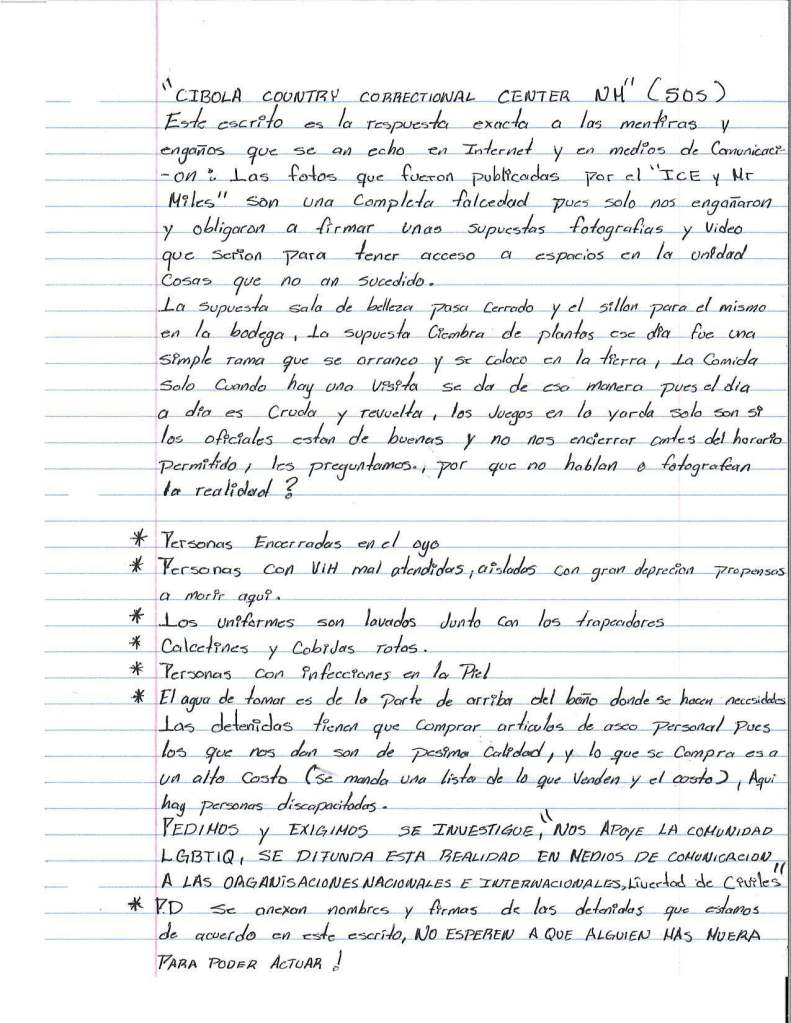 "CIBOLA COUNTRY CORRECTIONAL CENTER NM" (SOS)
Este escrito es la respuesta exacta a las mentiras y
engaños que se an echo en Internet y en medios de Comunicaci-
-on: Las fotos que fueron publicadas por el "ICE y Mr
Miles" son una Completa falcedad pues solo nos engañaron
y obligaron a firmar unas supuestas fotografias y Video
que serion para tener acceso a espacios en la unidad
Cosas que no an sucedido.
La supuesta sala de belleza pasa Cerrado y el sillon para el mismo
en la bodega, La supuesta Ciembra de plantas ese dia fue una
simple rama que se arranco y se coloco en la tierra, La Comida
solo Cuando hay una visita se da de esa manera pues el dia
a dia es Cruda y revuelta, los Juegos en la yarda solo son si
los oficiales estan de buenas y no nos encierrar antes del horario
permitido, les preguntamos., por que no hablan o fotografean
la realidad?
* Personas Encerradas en el oyo
* Personas con VIH mal atendidas, aisladas con gran deprecion propensas
a morir aqui.
* Los uniformes son lavados Junto con los trapeadores
* Calcetines y Cobijas rotos.
* Personas con infecciones en la Piel
* El agua de tomar es de la parte de arriba del baño donde se hacen necesidades
Las detenidas tienen que comprar articulos de aseo personal pues
los que nos dan son de pesima Calidad, y lo que se Compra es a
un alto Costo (se manda una lista de lo que Venden y el costo), Aqui
hay personas discapacitadas.
PEDIMOS y EXIGIMOS SE INVESTIGUE, "NOS APOYE LA COMUNIDAD
LGBTIQ, SE DIFUNDA ESTA REALIDAD EN MEDIOS DE COMUNICACION
A LAS ORGANISACIONES NACIONALES E INTERNACIONALES, Livertad de Civiles"
* P.D se anexan nombres y firmas de las detenidas que estamos
de acuerdo en este escrito, NO ESPEREN A QUE ALGUIEN MAS MUERA
PARA PODER ACTUAR!